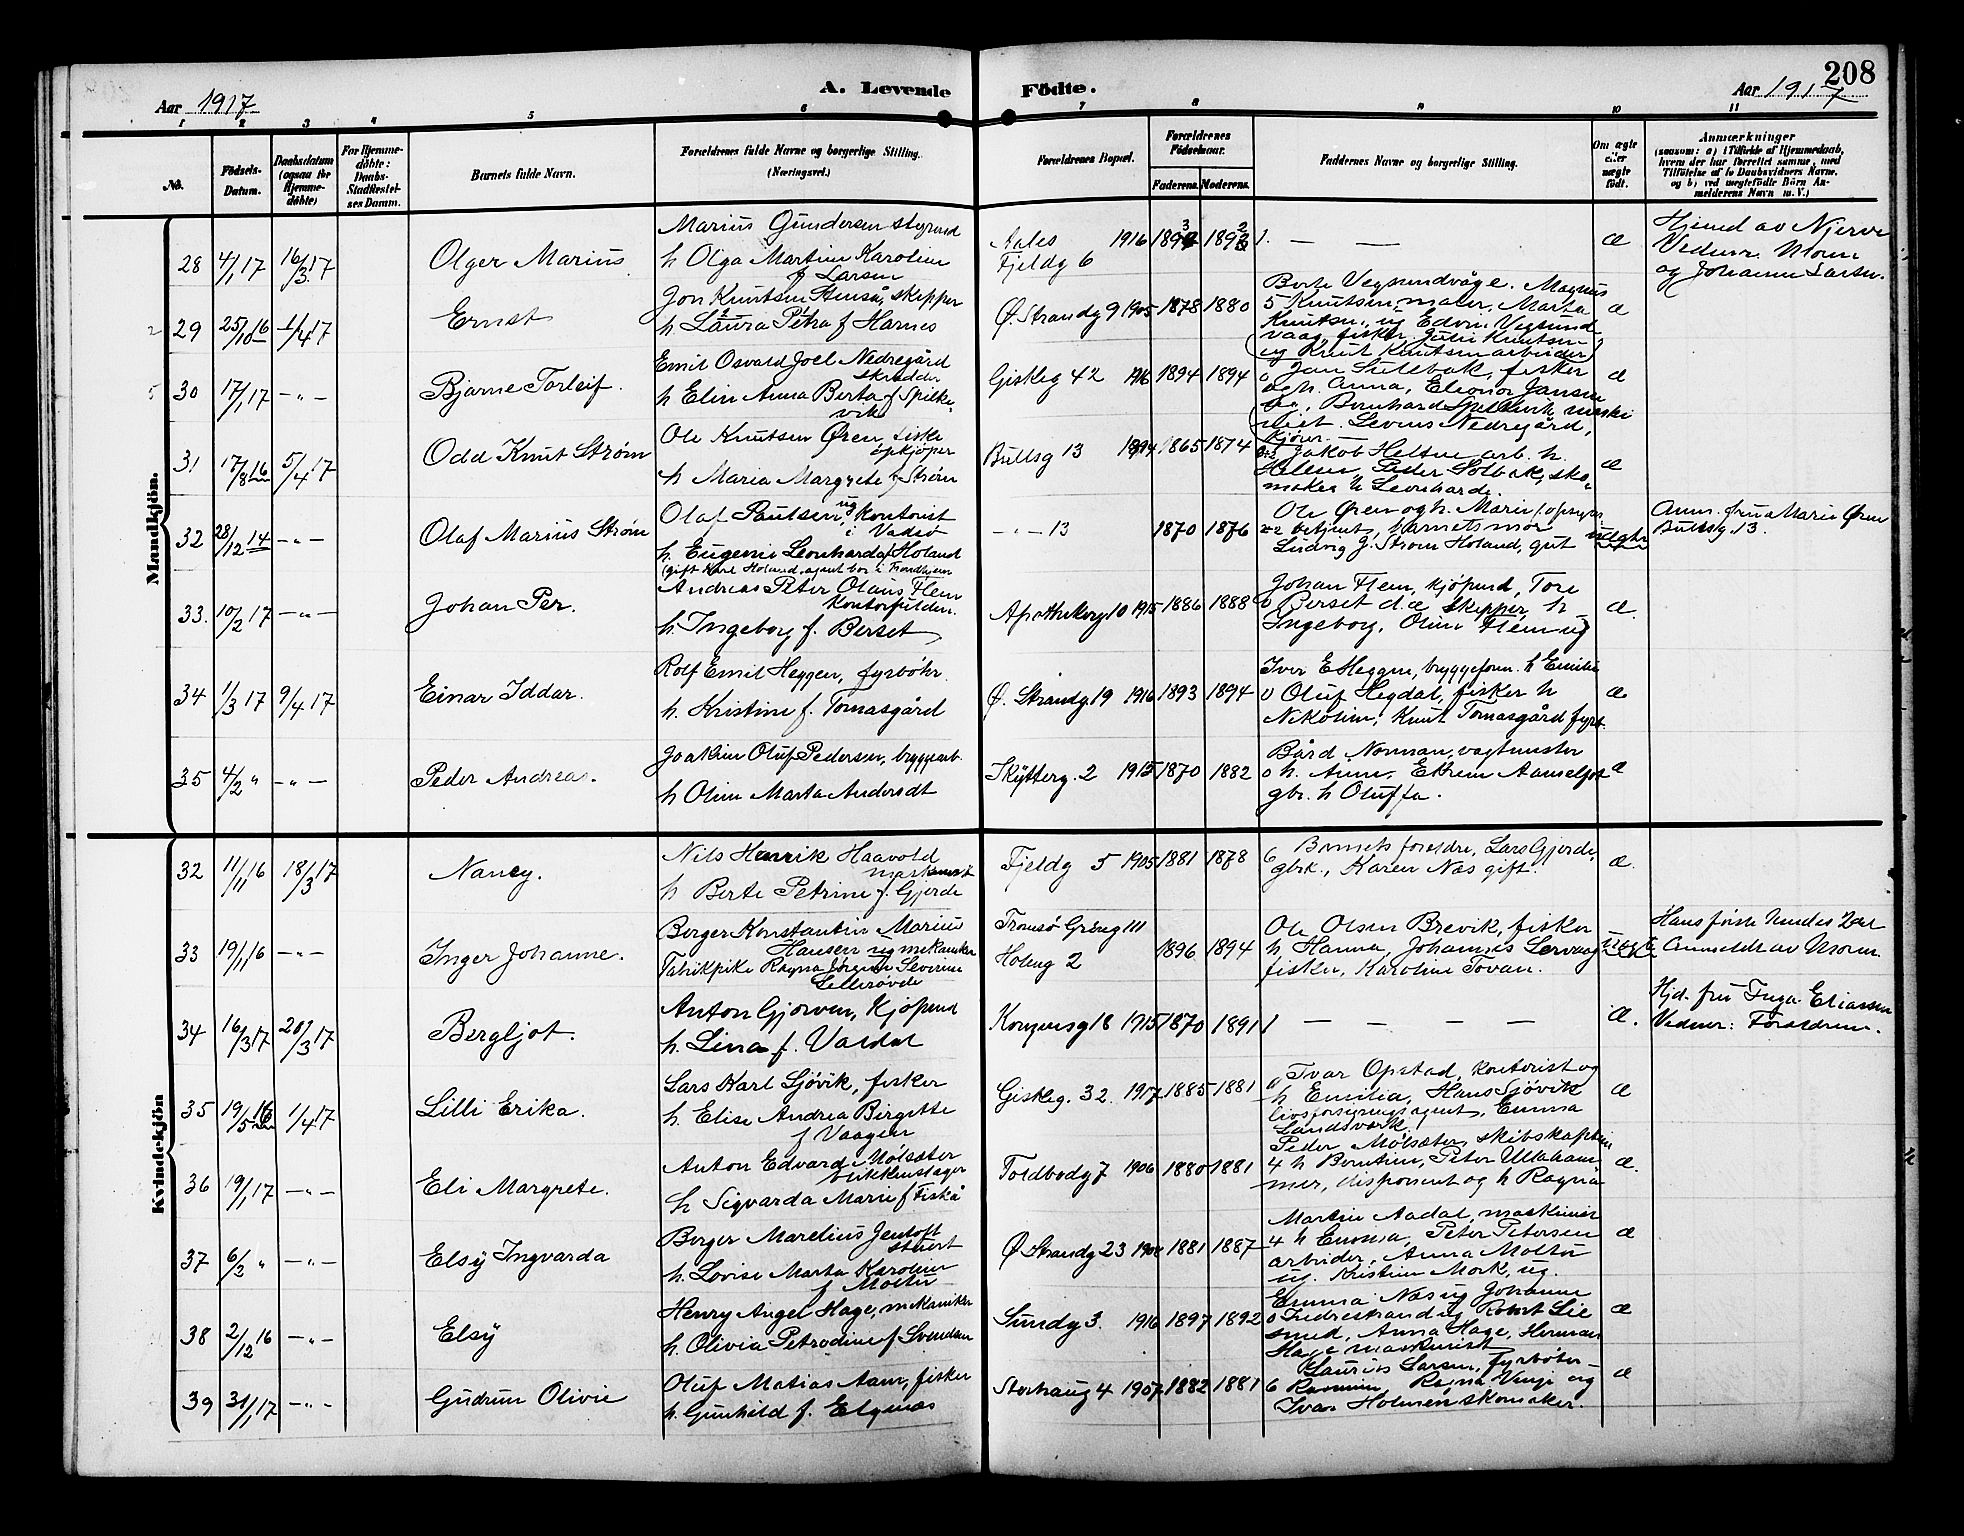 208
Aar 1917
A. Levende
Födte.
Aar 1917
1 2 3 4 5 6 7 8 9 10 11
No.
Födsels-Datum.
Daabsdatum (ogsaa for Hjemmedöbte)
For Hjemmedöbte: Daabs-Stadfestelses Datum.
Barnets fulde Navn.
Forældrenes fulde Navne og borgerlige Stilling. (Næringsvei.)
Forældrenes Bopæl.
Forældrenes Födselsaar.
Faderens. Moderens.
Faddernes Navne og borgerlige Stilling.
Om ægte eller uægte födt.
Anmærkninger
(saasom: a) i Tilfælde af Hjemmedaab, hvem der har forrettet samme, med Tilföielse af to Daabsvidners Navne, og b) ved uægtefödte Börn Anmelderens Navn m. V.)
Mandkjön.
28 4/1 17 16/3 17 Olger Marius
Marius Gundersen styrmd
h Olga Martine Karoline
f Larsen
Aales 1916 1893 1892
Fjeldg 6
1. — —
æ
Hjemd av Njerve
Vidner. Moren
og Johanne Larsen.
29 25/10 16 1/4 17 Ernst
Jon Knutsen Stenså, skipper
h Laura Petra f Harnes
Ø. Strandg 9 1905 1878 1880
Berte Vegsundvåge. Magnus
5 Knutsen, maler, Marta
Knutsen, ug Edvin Vegsund
vaag, fisker, Julie Knutsen
og Knut Knutsen arbeider
æ
30 17/1 17 — " — Bjarne Torleif.
Emil Osvald Joel Nedregård
skrædder
h Elin Anna Berta f Spilke-
vik
Giskeg 42 1916 1894 1894
Jan Sulebak, fisker
og h. Anna, Eleonor Jansen
Bernhard Spilkevik maski
nist. Levins Nedregård,
æ
31 17/8 16 5/4 17 Odd Knut Strøm
Ole Knutsen Øren, fiske
opkjöper
h Maria Margrete f Strøm
Bullsg 13 1894 1865 1874
Jakob Helsen arb. h.
Helene, Peder Solbak, sko-
maker h Leonharde.
æ
32 28/12 14 — " — Olaf Marius Strøm
Olaf Paulsen, ug kontorist
i Vadsö
h. Eugenie Leonharda f Holand
(gift Karl Holand, agent bor i Trondhjem
— " — 13 1870 1876
Ole Øren og h. Marie, opsyns
betjent, barnets mor
Ludvig J. Strøm Holand, gut
uægte
Anm. frua Marie Øren
Bullsg. 13.
33. 10/2 17 — " — Johan Per.
Andreas Peter Olaus Flem
Kontorfuldm.
h. Ingeborg f. Berset
Apothekerg 10 1915 1886 1888
Johan Flem, kjöpmd, Tore
0 Berset d.æ skipper, h
Ingeborg, Oline Flem ug
æ.
34 1/3 17 9/4 17 Einar Iddar.
Rolf Emil Heggen, fyrböhr.
h. Kristine f. Tomasgård
Ø. Strandg. 19 1916 1893 1894
Iver E Heggen, bryggeform. h Emilie
0 Oluf Hegdal, fisker h
Nikoline, Knut Tomasgård fyrb.
æ
35 4/2 " — " — Peder Andreas.
Joakim Oluf Pedersen, bryggearb.
h Oline Marta Andersdt
Skytterg. 2 1915 1870 1882
Bård Norman, vagtmester
0 h. Anne, Efrem Aamselfot
gbr. h Oluffa.
æ
Kvindekjön
32 11/11 16 18/3 17 Nancy.
Nils Henrik Haavold
maskinist
h Berte Petrine f. Gjerde
Fjeldg 5 1905 1881 1878
6 Barnets forældre, Lars Gjerde,
gbrk., Karen Næs gift.
æ.
33 19/11 16 — " — Inger Johanne.
Berger Konstantin Marius
Hansen ug mekaniker
Fabrikpike Ragna Jørgine Severine
Lillerøvde
Tromsö Grönng 111
Holmg 2 1896 1894
Ole Olsen Brevik, fisker
h, Hanna, Johannes Lervaag
fisker, Karoline Tovan.
uægte
Hans förste hendes 2det
Anmeldt av Moren.
34 16/3 17 20/3 17 Bergljot.
Anton Gjörven, Kjöpmd
h. Lina f. Vardal
Kongensg 18 1915 1870 1891
1 — — — —
æ.
Hjd. fru Inga Eliassen
Vidner: Forældrene.
35 19/5 16 1/4 17 Lilli Erika.
Lars Karl Sjövik, fisker
h. Elise Andrea Birgitte
f Vaagen
Giskeg. 32. 1917 1885 1881
Ivar Opstad, kontorist og
h Emilia, Hans Sjövik
livsforsigringsagent, Emma
Landsværk!
æ
36 19/1 17 — " — Eli Margrete.
Anton Edvard Molsæter
blikkenslager
h Sigvarda Marie f Fiskå
Toldbodg 7 1906 1880 1881
Peder Molsæter, skibskaptein
4 h Berntine, Peter Ullaham-
mer, disponent og h Ragna
æ.
37 6/2 " — " — Elsy Ingvarda
Berger Marelius Jentoft
stuert
h. Lovise Marta Karoline
f Molter
Ø Strandg 23 1881 1887
Martin Aadal, maskiner
4 h Emma, Peter Petersen
arbeider, Anna Molter
ug. Kristine Mork, ug.
æ
38 2/12 16 — " — Elsy
Henry Angel Hage, mekaniker
h. Olivia Petrodine f Svendsen
Sundg 3. 1916 1897 1892
Emma Næs ug Johanne
0 Indrestrand ug Robert Lie
smed, Anna Hage, Herman
Hage maskinist
æ
39 31/1 17 — " — Gudrun Olivie
Oluf Matias Aam, fisker
h. Gunhild f. Elgenæs
Storhaug 4 1907 1882 1881
Laurits Larsen, fyrböter
6 Rasmine, Ragna Venje og
Ivar Holmen skomaker.
æ